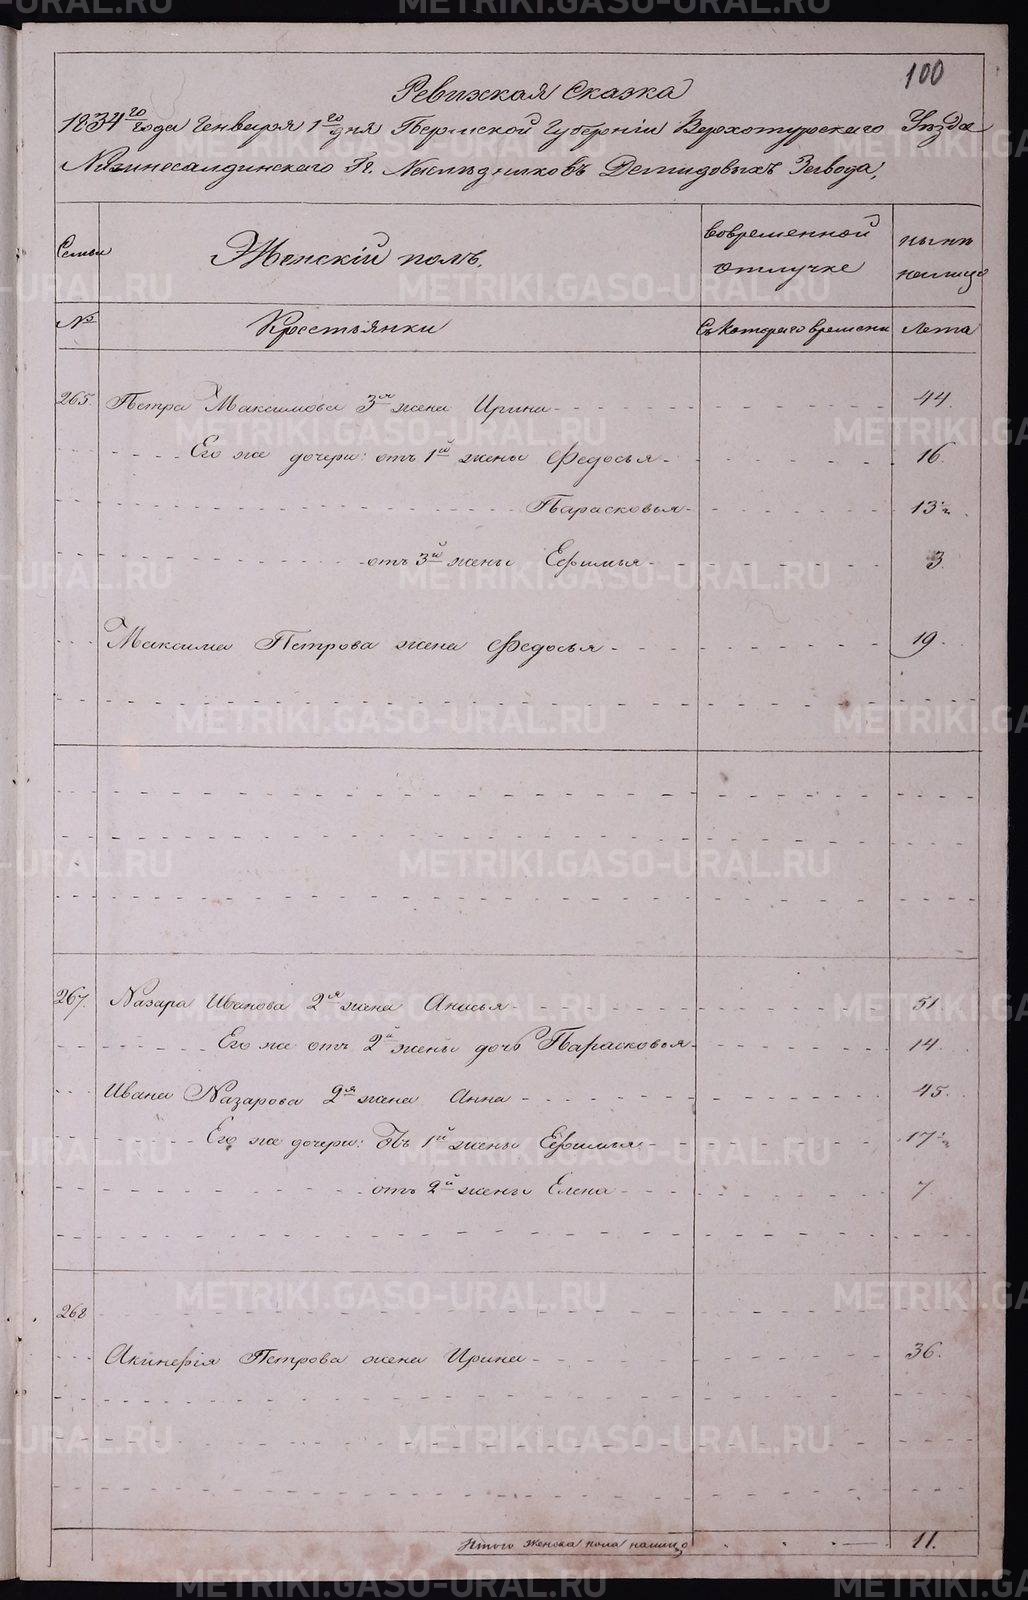 100
Ревижская Сказка
1834го года Генваря 1го дня Пермской Губернии Верхотурскаго Уезда
Нижнесалдинскаго Гг. Наследниковъ Демидовыхъ Завода,
Семьи Женскій полъ, вовременной отлучке ныне налицо
№ Крестьянки Съ котораго времени Лета
265. Петра Максимова 3я жена Ирина 44.
Его же дочери: отъ 1й жены Федосья 16.
Парасковья 13½.
отъ 3й жены Ефимья 3.
Максима Петрова жена Федосья 19.
267. Назара Иванова 2я жена Анисья 51.
Его же отъ 2й жены дочь Парасковья 14.
Ивана Назарова 2я жена Анна 45.
Его же дочери: отъ 1й жены Ефимья 17½
отъ 2й жены Елена 7
268
Акинфія Петрова жена Ирина 36.
Итого женска пола налицо 11.
METRIKI.GASO-URAL.RU